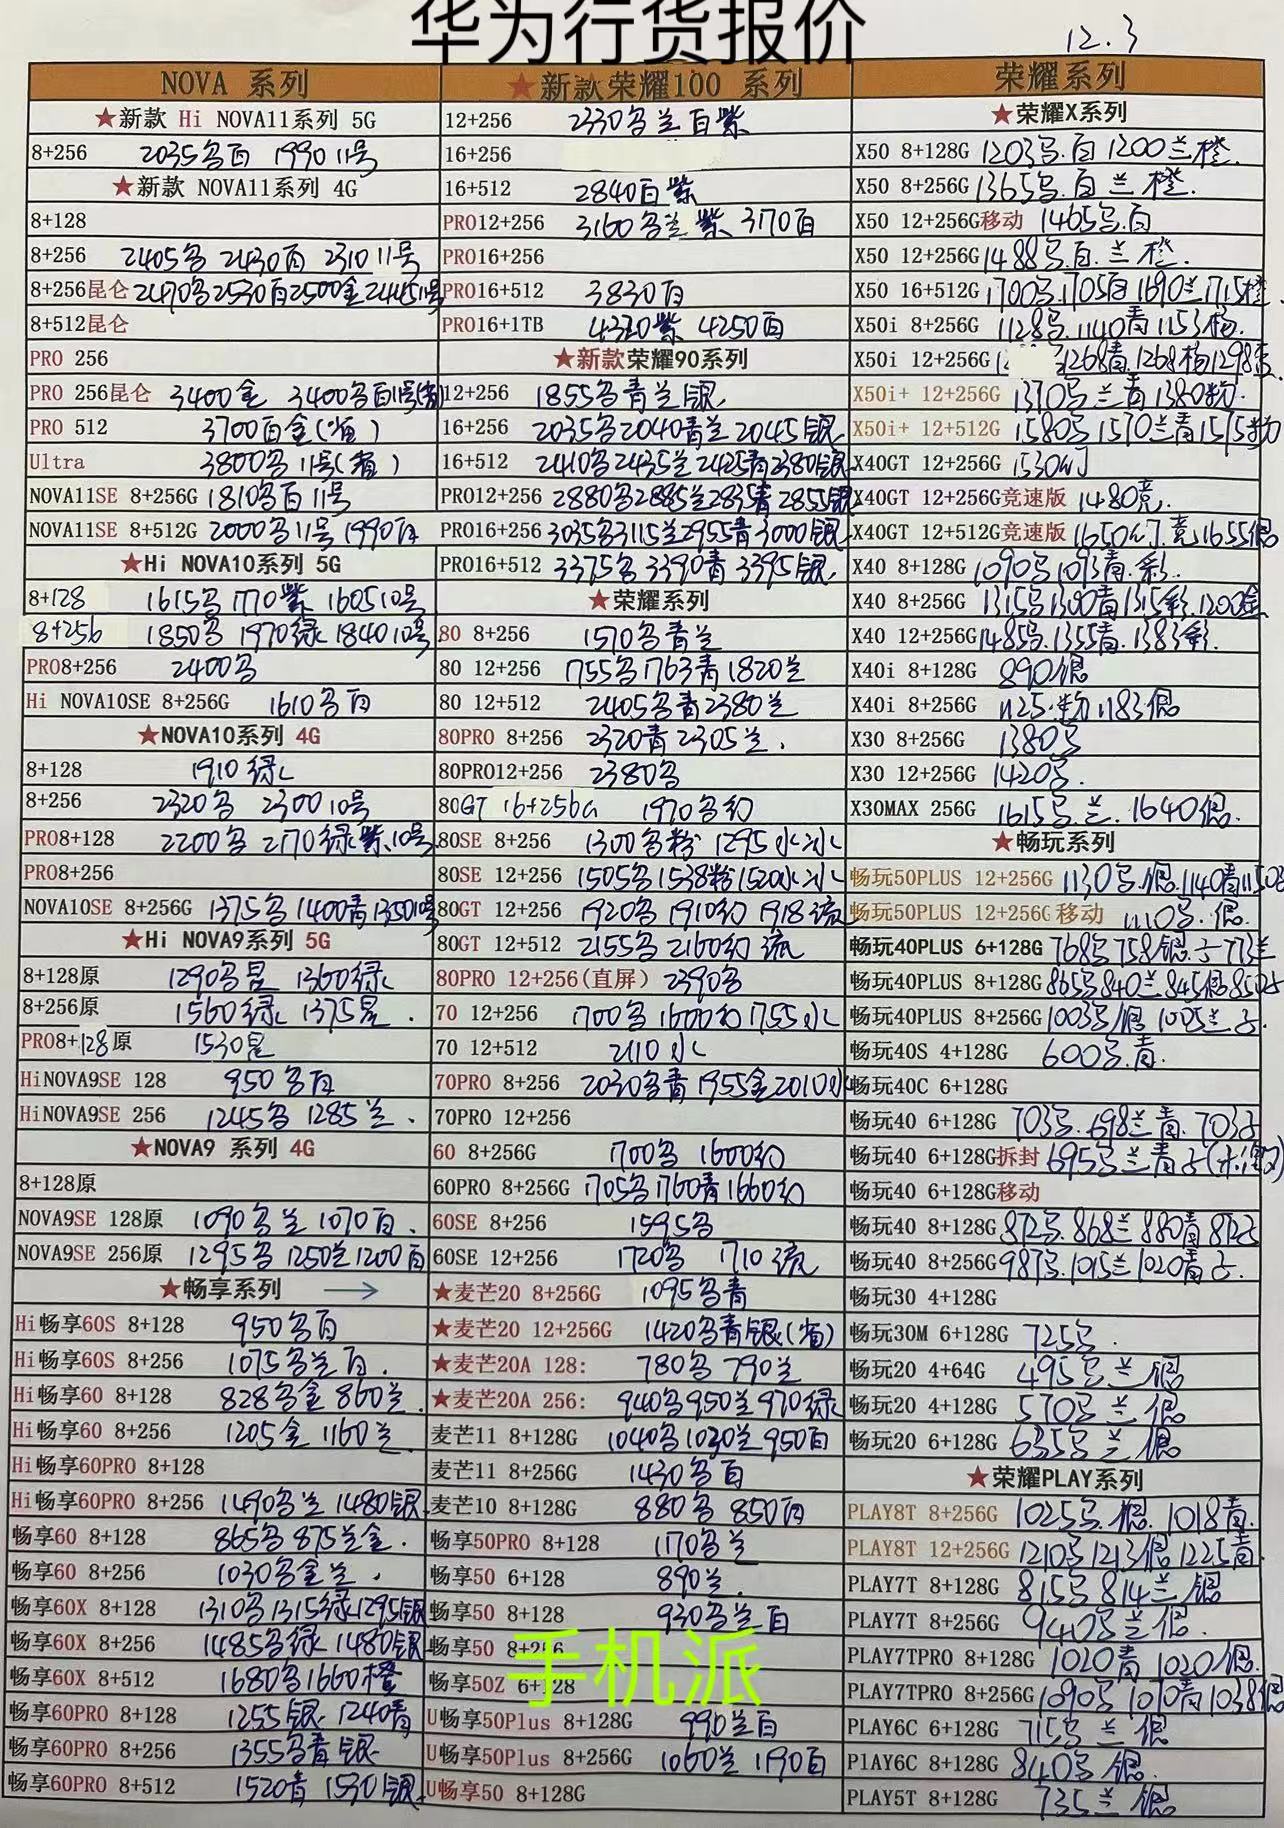 华为行货报价
12.3
NOVA 系列
★新款 Hi NOVA11系列 5G
8+256 2035名白 1990 11号
★新款 NOVA11系列 4G
8+128
8+256 2405名 2430白 2310 11号
8+256昆仑 2470名2530白2500金2445 11号
8+512昆仑
PRO 256
PRO 256昆仑 3400金 3400名白11号
PRO 512 3700白金(省)
Ultra 3800名11号(省)
NOVA11SE 8+256G 1810名白11号
NOVA11SE 8+512G 2000名11号 1990白
★Hi NOVA10系列 5G
8+128 1615名1770紫 1605 10号
8+256 1850名 1970绿 1840 10号
PRO8+256 2400名
Hi NOVA10SE 8+256G 1610名白
★NOVA10系列 4G
8+128 1910绿
8+256 2320名 2300 10号
PRO8+128 2200名 2170绿紫.10号
PRO8+256
NOVA10SE 8+256G 1375名1400青1350 10号
★Hi NOVA9系列 5G
8+128原 1290名星 1360绿
8+256原 1560绿 1375星.
PRO8+128原 1530星
HiNOVA9SE 128 950名白
HiNOVA9SE 256 1245名 1285兰.
★NOVA9 系列 4G
8+128原
NOVA9SE 128原 1090名兰 1070白.
NOVA9SE 256原 1295名 1250兰1200白
★畅享系列 →
Hi畅享60S 8+128 950名白
Hi畅享60S 8+256 1075名兰白.
Hi畅享60 8+128 828名金 860兰.
Hi畅享60 8+256 1205金 1160兰.
Hi畅享60PRO 8+128
Hi畅享60PRO 8+256 1490名兰 1480银.
畅享60 8+128 865名 875兰金.
畅享60 8+256 1030名金兰.
畅享60X 8+128 1310名1315绿1295银
畅享60X 8+256 1485名绿 1480银
畅享60X 8+512 1680名1660橙
畅享60PRO 8+128 1255银 1240青
畅享60PRO 8+256 1355名青银
畅享60PRO 8+512 1520青 1530银
★新款荣耀100 系列
12+256 2330名兰白紫
16+256
16+512 2840白紫
PRO12+256 3160名兰紫 3170白
PRO16+256
PRO16+512 3830白
PRO16+1TB 4320紫 4250白
★新款荣耀90系列
12+256 1855名青兰银.
16+256 2035名2040青兰2045银
16+512 2410名2435兰2425青2380银
PRO12+256 2880名2885兰2835青2855银
PRO16+256 3035名3115兰2955青3000银
PRO16+512 3375名 3390青 3395银.
★荣耀系列
80 8+256 1570名青兰
80 12+256 1755名1763青1820兰
80 12+512 2405名青2380兰
80PRO 8+256 2320青 2305兰.
80PRO12+256 2380名
80GT 16+256G 1970名幻
80SE 8+256 1300名粉 1295水冰
80SE 12+256 1505名1538粉1520水冰
80GT 12+256 1920名 1910幻 1918流
80GT 12+512 2155名 2160幻 流
80PRO 12+256(直屏) 2390名
70 12+256 1700名 1600幻 1755水
70 12+512 2110水
70PRO 8+256 2030名青 1955金2010水
70PRO 12+256
60 8+256G 1700名 1600幻
60PRO 8+256G 1705名1760青1660幻
60SE 8+256 1595名
60SE 12+256 1720名 1710流
★麦芒20 8+256G 1095名青
★麦芒20 12+256G 1420名青银(省)
★麦芒20A 128: 780名 790兰
★麦芒20A 256: 940名950兰970绿
麦芒11 8+128G 1040名1030兰950白
麦芒11 8+256G 1430名白
麦芒10 8+128G 880名 850白
畅享50PRO 8+128 1170名兰
畅享50 6+128 890兰.
畅享50 8+128 930名兰白
畅享50 8+256
畅享50Z 6+128
U畅享50Plus 8+128G 990兰白
U畅享50Plus 8+256G 1060兰 1190白
U畅享50 8+128G
手机派
荣耀系列
★荣耀X系列
X50 8+128G 1203名.白 1200兰橙.
X50 8+256G 1365名.白 兰 橙.
X50 12+256G移动 1465名.白
X50 12+256G 1488名.白.兰.橙.
X50 16+512G 1700名.1705白1690兰1715橙.
X50i 8+256G 1128名.1140青1153粉.
X50i 12+256G 1268青.1268粉1298
X50i+ 12+256G 1370名兰青1380粉.
X50i+ 12+512G 1580名1570兰青1575粉
X40GT 12+256G 1530幻
X40GT 12+256G竞速版 1480竞.
X40GT 12+512G竞速版 1650幻.竞1655银
X40 8+128G 1090名1093青.彩.
X40 8+256G 1315名1300青1315彩.1200金
X40 12+256G 1485名.1355青.1383彩.
X40i 8+128G 890银
X40i 8+256G 1125.粉1183银
X30 8+256G 1380名
X30 12+256G 1420名.
X30MAX 256G 1615名.兰. 1640银.
★畅玩系列
畅玩50PLUS 12+256G 1130名.银.1140青
畅玩50PLUS 12+256G 移动 1110名.银.
畅玩40PLUS 6+128G 768名758银.子773兰
畅玩40PLUS 8+128G 865名840兰845银850子
畅玩40PLUS 8+256G 1003名银 1025兰子.
畅玩40S 4+128G 600名.青.
畅玩40C 6+128G
畅玩40 6+128G 703名.698兰青.703子
畅玩40 6+128G拆封 695名兰青子
畅玩40 6+128G移动
畅玩40 8+128G 872名.868兰880青872子
畅玩40 8+256G 987名.1015兰1020青子.
畅玩30 4+128G
畅玩30M 6+128G 725名.
畅玩20 4+64G 495名兰银
畅玩20 4+128G 570名兰银
畅玩20 6+128G 635名兰银
★荣耀PLAY系列
PLAY8T 8+256G 1025名.银.1018青.
PLAY8T 12+256G 1210名1213银1225青.
PLAY7T 8+128G 815名814兰银
PLAY7T 8+256G 940名兰银.
PLAY7TPRO 8+128G 1020青 1020银.
PLAY7TPRO 8+256G 1090名 1070青1038银
PLAY6C 6+128G 715名兰银
PlAY6C 8+128G 840名银.
PLAY5T 8+128G 735兰银